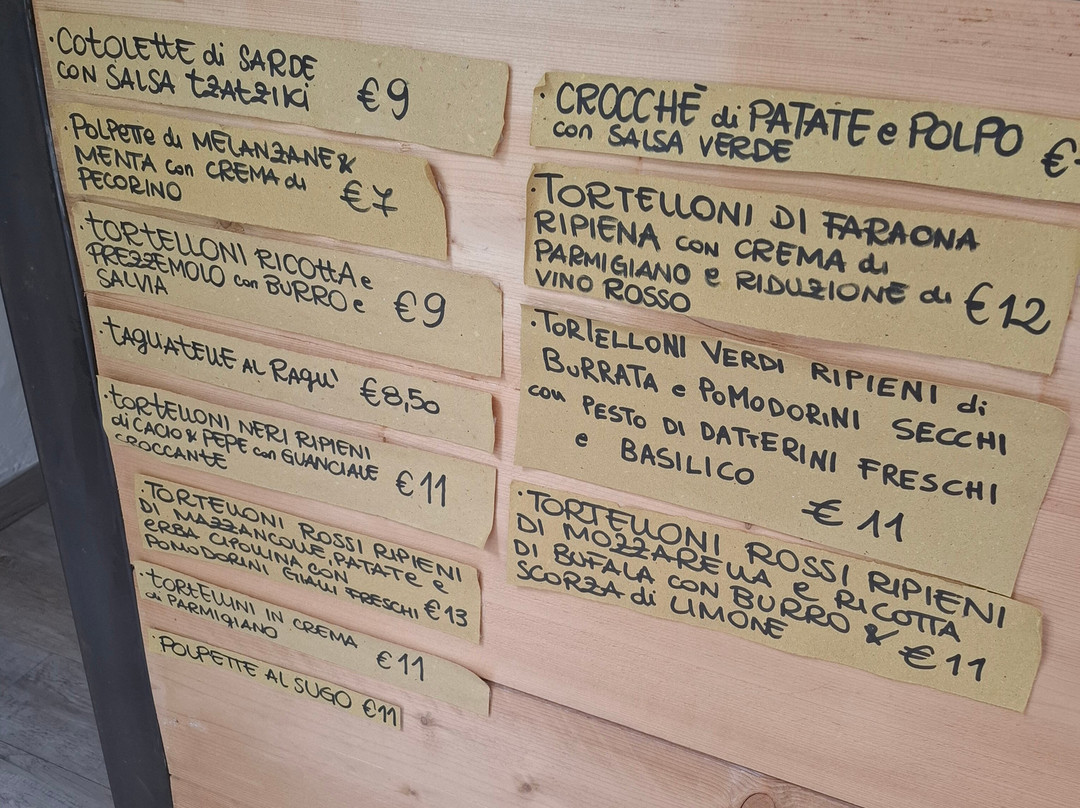 · COTOLETTE di SARDE
CON SALSA TZATZIKI €9
· POLPETTE di MELANZANE &
MENTA con CREMA di €7
PECORINO
· TORTELLONI RICOTTA e
PREZZEMOLO con BURRO e €9
SALVIA
· TAGLIATELLE AL RAGU' €8,50
· TORTELLONI NERI RIPIENI
di CACIO & PEPE con GUANCIALE
CROCCANTE €11
· TORTELLONI ROSSI RIPIENI
DI MAZZANCOLLE, PATATE e
ERBA CIPOLLINA CON
POMODORINI GIALLI FRESCHI €13
· TORTELLINI IN CREMA
di PARMIGIANO €11
· POLPETTE AL SUGO €11
· CROCCHÈ di PATATE e POLPO
con SALSA VERDE €
· TORTELLONI DI FARAONA
RIPIENA con CREMA di
PARMIGIANO e RIDUZIONE di
VINO ROSSO €12
· TORTELLONI VERDI RIPIENI di
BURRATA e POMODORINI SECCHI
con PESTO DI DATTERINI FRESCHI
e BASILICO
€11
· TORTELLONI ROSSI RIPIENI
DI MOZZARELLA e RICOTTA
DI BUFALA CON BURRO &
SCORZA di LIMONE €11